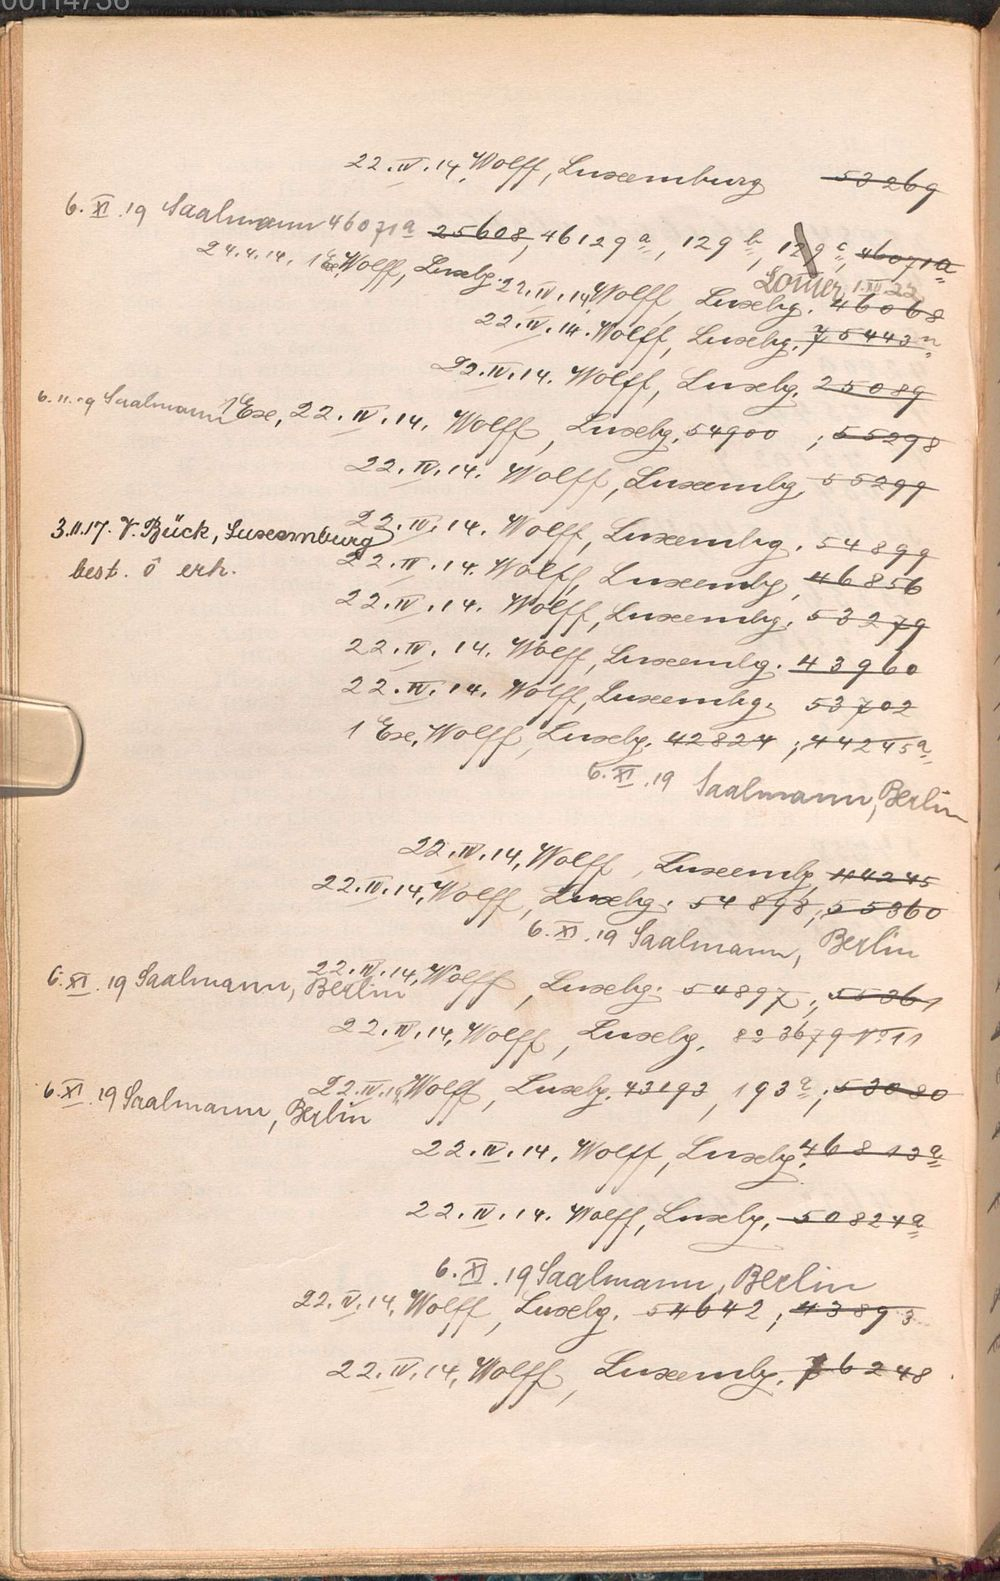 00114736
22.IV.14. Wolff, Luxemburg 53269
6.XI.19 Saalmann 46071a 25608, 46129a, 129b, 129c, 46071a
24.4.14. 1 Ex. Wolff, Luxbg.
Lomer, 1.XII.22
22.IV.14, Wolff, Luxbg. 46068
22.IV.14. Wolff, Luxbg. 75443n
22.IV.14. Wolff, Luxbg. 25089
6.11.19 Saalmann 1 Ex, 22.IV.14. Wolff, Luxbg. 54900 ; 55298
22.IV.14. Wolff, Luxembg. 55299
22.IV.14. Wolff, Luxembg. 54899
3.II.17. V. Bück, Luxemburg
best. ô erh.
22.IV.14. Wolff, Luxembg. 46856
22.IV.14. Wolff, Luxembg. 53279
22.IV.14. Wolff, Luxembg. 43960
22.IV.14. Wolff, Luxembg. 53702
1 Ex. Wolff, Luxbg. 42824 ; 44245a
6.XI.19 Saalmann, Berlin
22.IV.14, Wolff, Luxembg. 44245
22.IV.14, Wolff, Luxbg. 54898 ; 55360
6.XI.19 Saalmann, Berlin
22.IV.14, Wolff, Luxbg. 54897 ; 55361
6.XI.19 Saalmann, Berlin
22.IV.14, Wolff, Luxbg. 8º 3679 Nº 11
22.IV.14, Wolff, Luxbg. 43193, 193a ; 53080
6.XI.19 Saalmann, Berlin
22.IV.14. Wolff, Luxbg. 46813a
22.IV.14. Wolff, Luxbg. 50824a
6.XI.19 Saalmann, Berlin
22.IV.14, Wolff, Luxbg. 54642 ; 43893
22.IV.14, Wolff, Luxembg. 76248